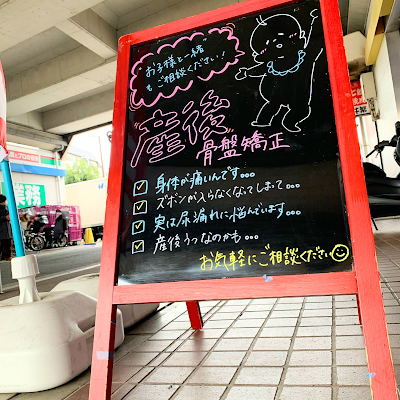 "お子様と一緒"
もご相談ください!
産後
骨盤矯正
身体が痛いんです...
ズボンが入らなくなってしまって...
実は尿漏れに悩んでいます...
産後うつなのかも...
お気軽にご相談ください
業務